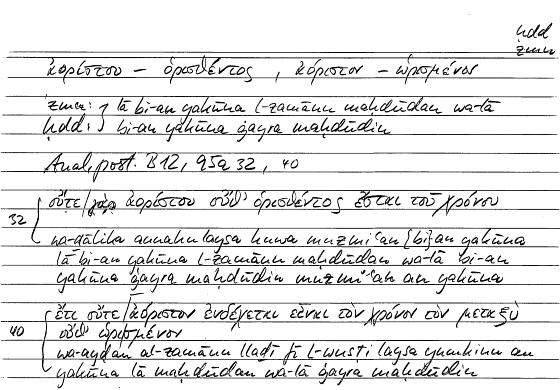 ḥdd
zmn
ἀορίστου – ὁρισθέντος , ἀόριστον – ὡρισμένον
zmn: } lā bi-an yakūna l-zamānu maḥdūdan wa-lā
ḥdd: } bi-an yakūna ġayra maḥdūdin
Anal. post. B 12, 95a 32, 40
32 οὔτε / γὰρ ἀορίστου οὔθ' ὁρισθέντος ἔσται τοῦ χρόνου
wa-ḏālika annahu laysa huwa muzmiʿan {bi}an yakūna
lā bi-an yakūna l-zamānu maḥdūdan wa-lā bi-an
yakūna ġayra maḥdūdin muzmiʿan an yakūna
40 ἔτι οὔτε / ἀόριστον ἐνδέχεται εἶναι τὸν χρόνον τὸν μεταξὺ
οὔθ' ὡρισμένον
wa-ayḍan al-zamānu llaḏī fī l-wusṭi laysa yumkinu an
yakūna lā maḥdūdan wa-lā ġayra maḥdūdin